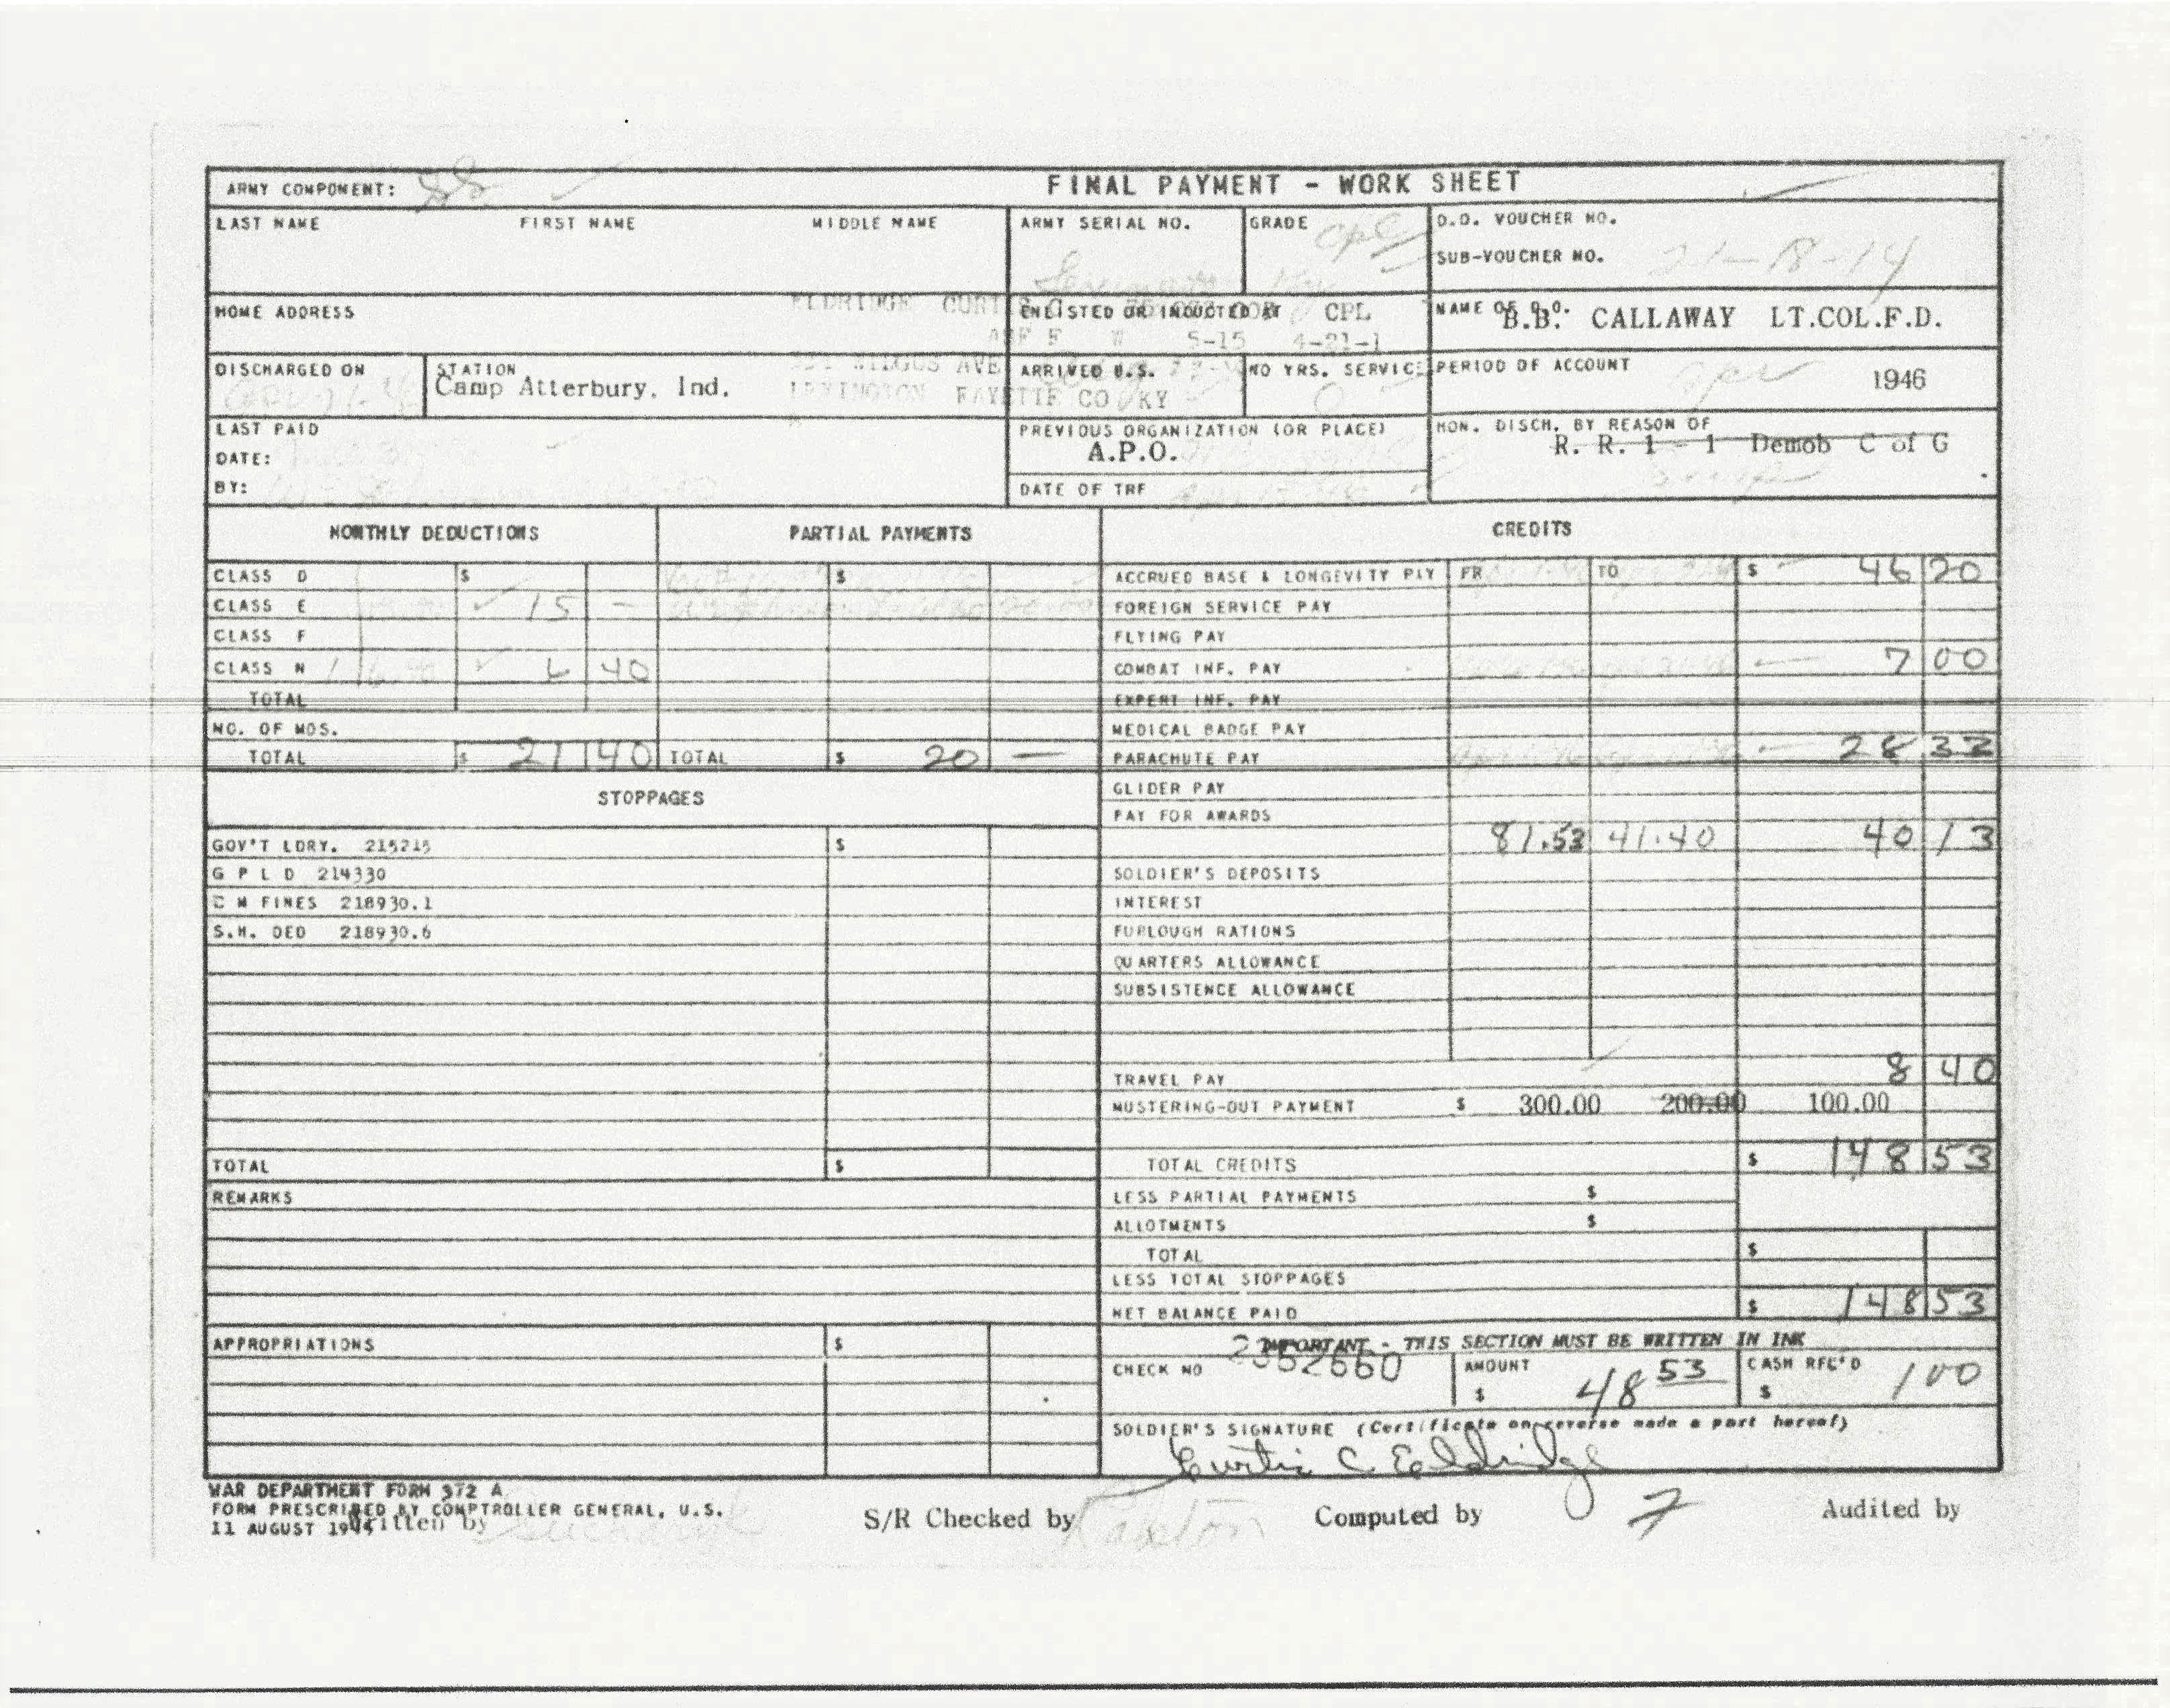 ARMY COMPONENT:
FINAL PAYMENT - WORK SHEET
LAST NAME FIRST NAME MIDDLE NAME
ARMY SERIAL NO.
GRADE Cpl
D.O. VOUCHER NO.
SUB-VOUCHER NO. 21-18-14
HOME ADDRESS
ELDRIDGE CURTIS C CPL
ENLISTED OR INDUCTED AT
W 5-15 4-21-1
NAME OF D.O. B.B. CALLAWAY LT.COL.F.D.
DISCHARGED ON
STATION
Camp Atterbury, Ind.
AVE
LEXINGTON FAYETTE CO KY
ARRIVED U.S.
NO YRS. SERVICE
0
PERIOD OF ACCOUNT Apr 1946
LAST PAID
DATE:
BY:
PREVIOUS ORGANIZATION (OR PLACE)
A.P.O.
DATE OF TRF
HON. DISCH. BY REASON OF
R. R. 1 - 1 Demob C of G
MONTHLY DEDUCTIONS
PARTIAL PAYMENTS
CREDITS
CLASS D $
$
ACCRUED BASE & LONGEVITY PAY FR TO $ 46 20
CLASS E 15 -
FOREIGN SERVICE PAY
CLASS F
FLYING PAY
CLASS N 6 40
COMBAT INF. PAY 7 00
TOTAL
EXPERT INF. PAY
NO. OF MOS.
MEDICAL BADGE PAY
TOTAL $ 21 40 TOTAL $ 20 -
PARACHUTE PAY 28 33
STOPPAGES
GLIDER PAY
PAY FOR AWARDS
81.53 41.40 40 13
GOV'T LDRY. 215215 $
G P L D 214330
SOLDIER'S DEPOSITS
C M FINES 218930.1
INTEREST
S.H. DED 218930.6
FURLOUGH RATIONS
QUARTERS ALLOWANCE
SUBSISTENCE ALLOWANCE
TRAVEL PAY 8 40
MUSTERING-OUT PAYMENT $ 300.00 200.00 100.00
TOTAL $
TOTAL CREDITS $ 148 53
REMARKS
LESS PARTIAL PAYMENTS $
ALLOTMENTS $
TOTAL $
LESS TOTAL STOPPAGES
NET BALANCE PAID $ 148 53
APPROPRIATIONS $
IMPORTANT - THIS SECTION MUST BE WRITTEN IN INK
CHECK NO
AMOUNT
$ 48 53
CASH REC'D
$ 100
SOLDIER'S SIGNATURE (Certificate on reverse made a part hereof)
Curtis C Eldridge
WAR DEPARTMENT FORM 372 A
FORM PRESCRIBED BY COMPTROLLER GENERAL, U.S.
11 AUGUST 1944
Written by
S/R Checked by
Computed by 7
Audited by